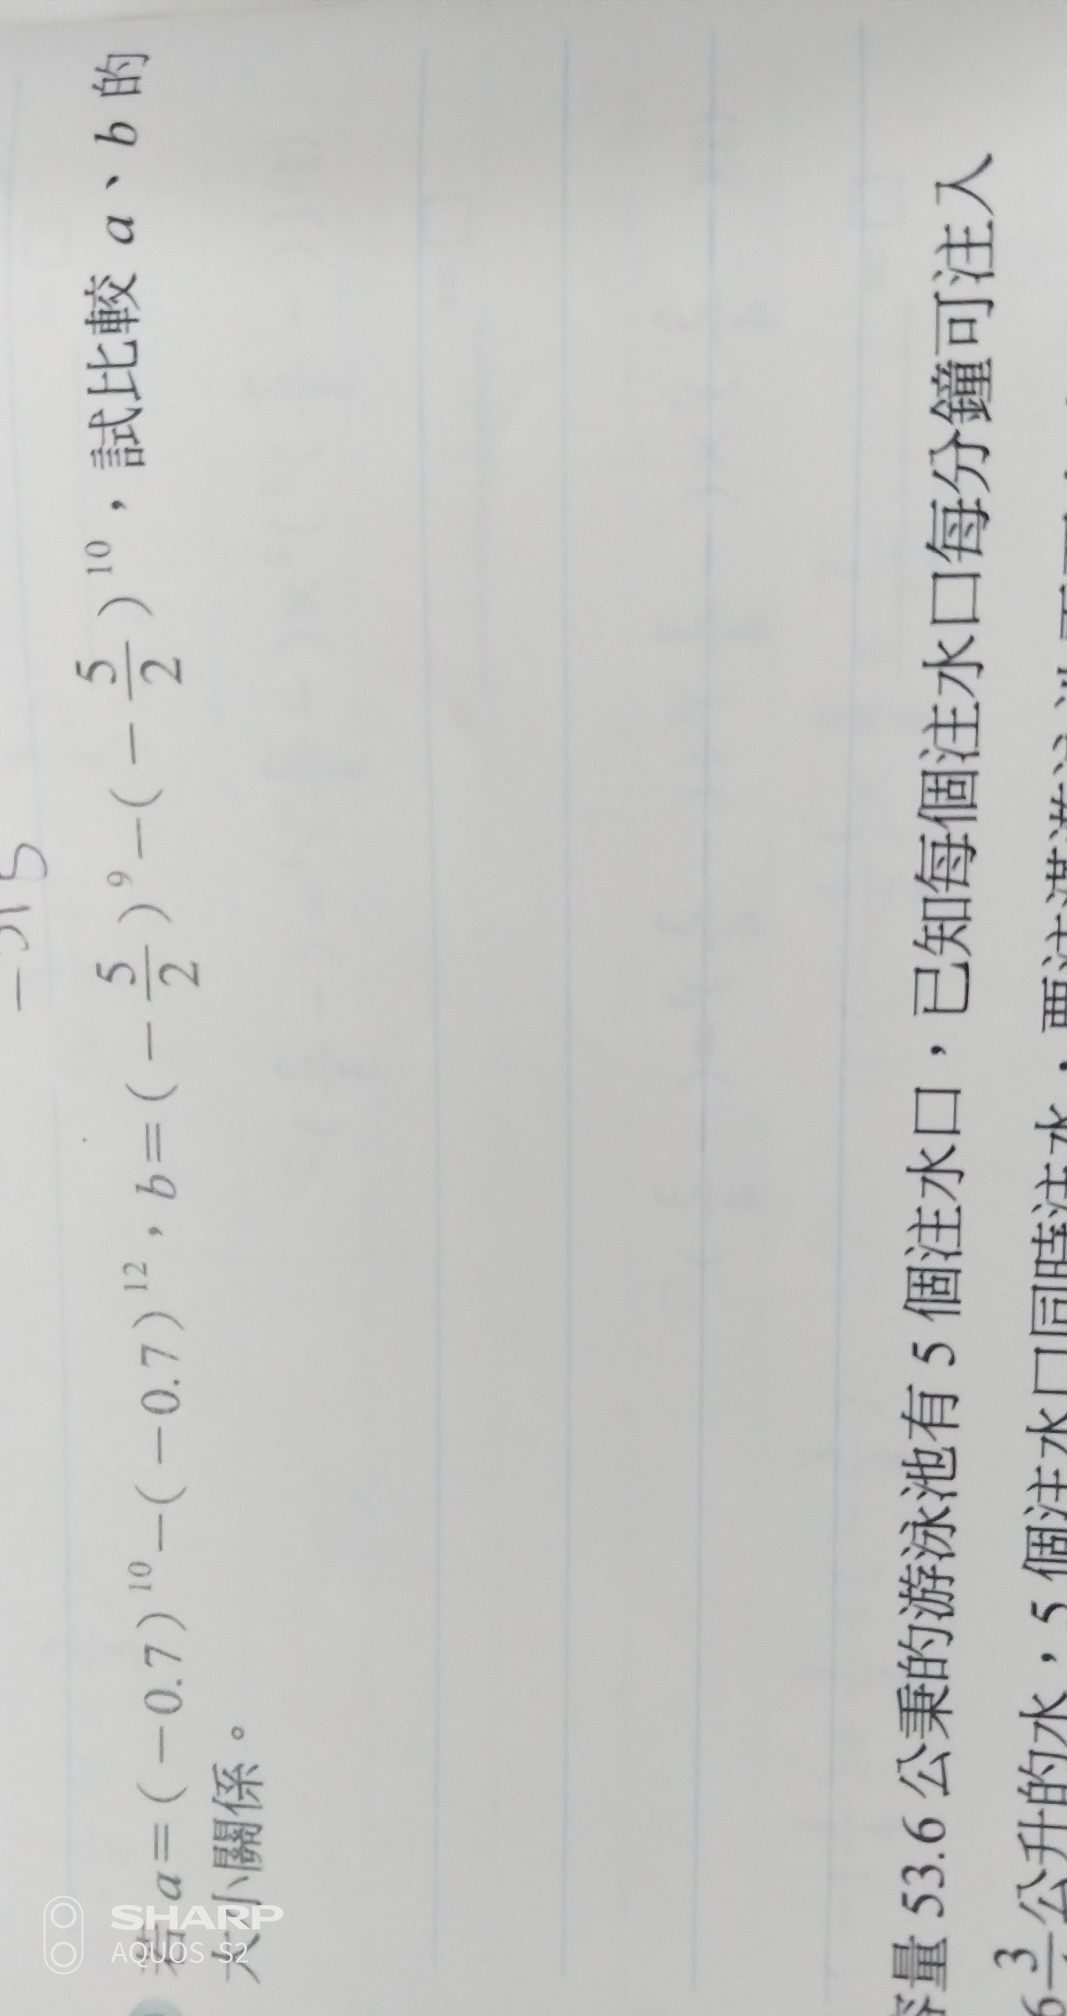 -315
若 a=(-0.7)¹⁰-(-0.7)¹²,b=(-5/2)⁹-(-5/2)¹⁰,試比較 a、b 的
大小關係。
容量 53.6 公秉的游泳池有 5 個注水口,已知每個注水口每分鐘可注入
6 3/ 公升的水,5 個注水口同時注水,要注滿游泳池
SHARP
AQUOS S2